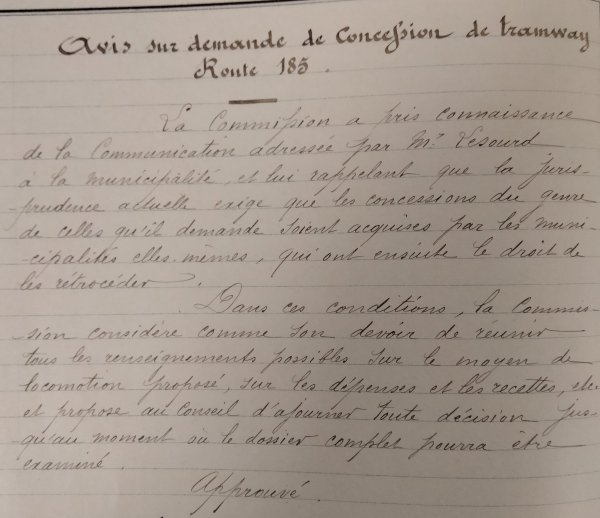 Avis sur demande de Concession de tramway
Route 185.
La Commission a pris connaissance
de la Communication adressée par Mr. Lesourd
à la municipalité, et lui rappelant que la juris-
-prudence actuelle exige que les concessions du genre
de celles qu'il demande soient acquises par les muni-
-cipalités elles-mêmes, qui ont ensuite le droit de
les rétrocéder.
Dans ces conditions, la Commis-
-sion considère comme son devoir de réunir
tous les renseignements possibles sur le moyen de
locomotion proposé, sur les dépenses et les recettes, etc
et propose au Conseil d'ajourner toute décision jus-
qu'au moment où le dossier complet pourra être
examiné.
Approuvé.